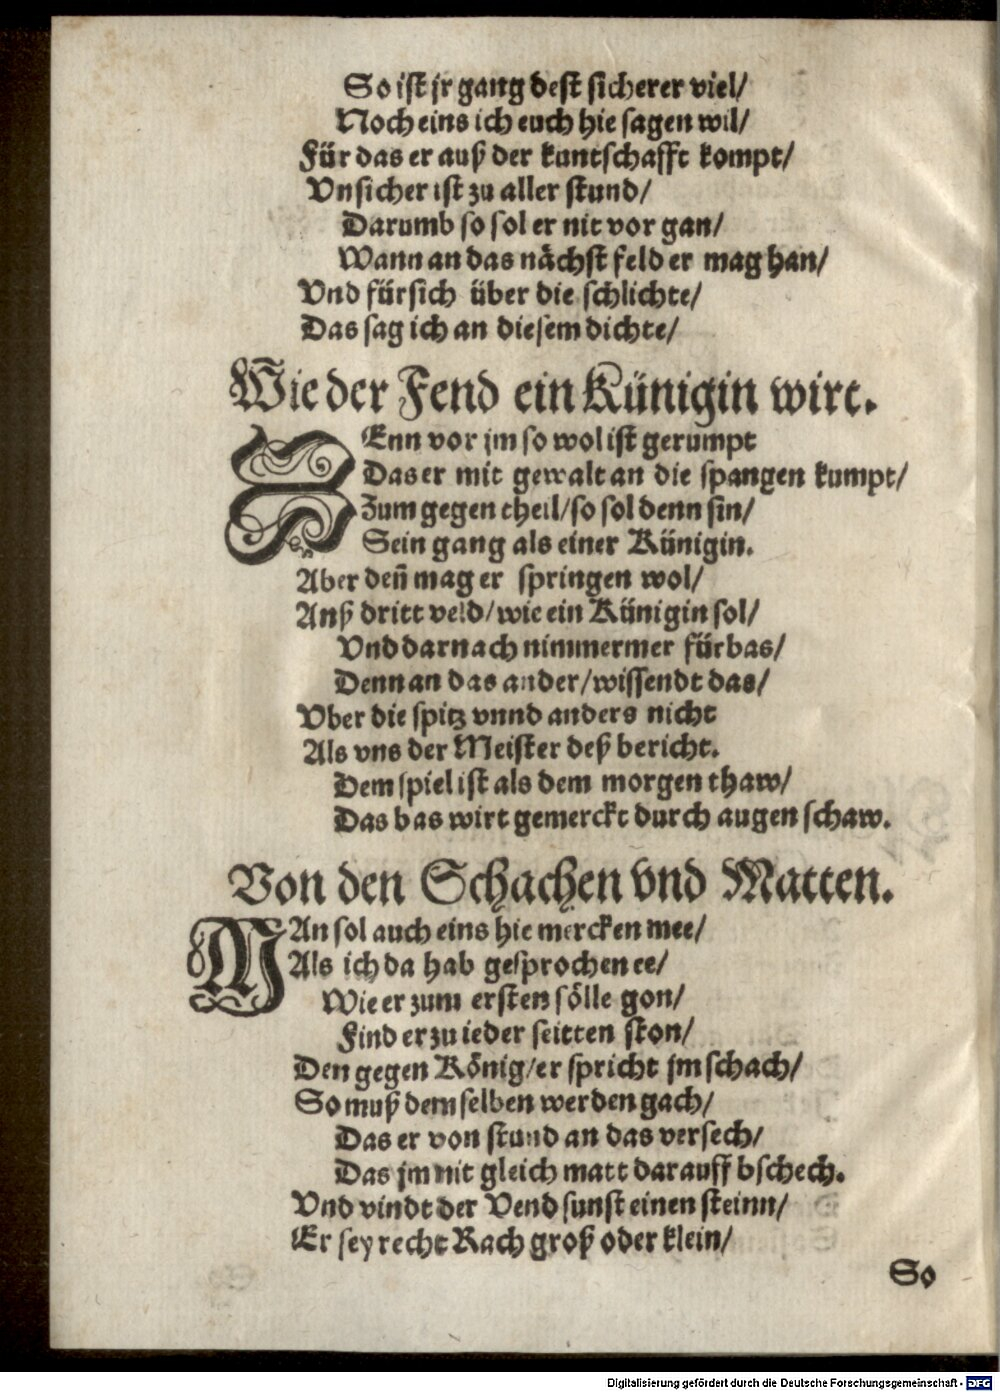 So ist jr gang dest sicherer viel/
Noch eins ich euch hie sagen wil/
Für das er auß der kuntschafft kompt/
Vnsicher ist zu aller stund/
Darumb so sol er nit vor gan/
Wann an das nächst feld er mag han/
Vnd fürsich über die schlichte/
Das sag ich an diesem dichte/
Wie der Fend ein Künigin wirt.
SEnn vor jm so wol ist gerumpt
Das er mit gewalt an die spangen kumpt/
Zum gegen theil/so sol denn sin/
Sein gang als einer Künigin.
Aber deñ mag er springen wol/
Anß dritt veld/wie ein Künigin sol/
Vnd darnach nimmermer fürbas/
Denn an das ander/wissendt das/
Vber die spitz vnnd anders nicht
Als vns der Meister deß bericht.
Dem spiel ist als dem morgen thaw/
Das bas wirt gemerckt durch augen schaw.
Von den Schachen vnd Matten.
MAn sol auch eins hie mercken mee/
Als ich da hab gesprochen ee/
Wie er zum ersten sölle gon/
Find er zu ieder seitten ston/
Den gegen König/er spricht jm schach/
So muß dem selben werden gach/
Das er von stund an das versech/
Das jm nit gleich matt darauff bschech.
Vnd vindt der Vend sunst einen steinn/
Er sey recht Rach groß oder klein/
So
Digitalisierung gefördert durch die Deutsche Forschungsgemeinschaft - DFG